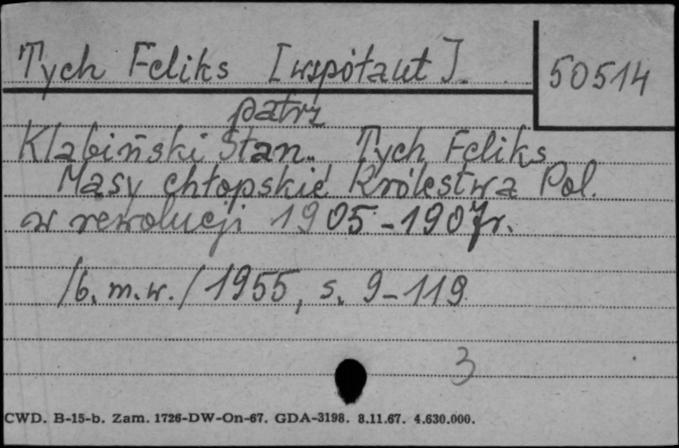 Tych Feliks [współaut].
50514
patrz
Kłabiński Stan. Tych Feliks
Masy chłopskie Królestwa Pol.
w rewolucji 1905-1907r.
/b.m.w./ 1955, s. 9-119
3
CWD. B-15-b. Zam. 1726-DW-On-67. GDA-3198. 8.11.67. 4.630.000.